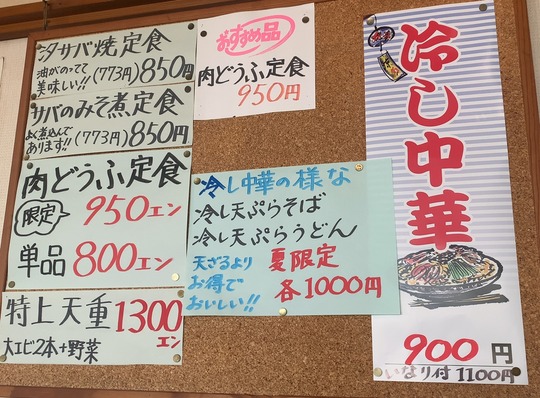 サバ焼定食
油がのってて
美味しい!!
(773円)
850円
サバのみそ煮定食
よく煮込んで
あります!!
(773円)
850円
肉どうふ定食
限定
950エン
単品 800エン
特上天重 1300
エン
大エビ2本+野菜
おすすめ品
肉どうふ定食
950円
冷し中華の様な
冷し天ぷらそば
冷し天ぷらうどん
天ざるより
お得で
おいしい!!
夏限定
各1000円
冷し中華
900円
いなり付 1100円